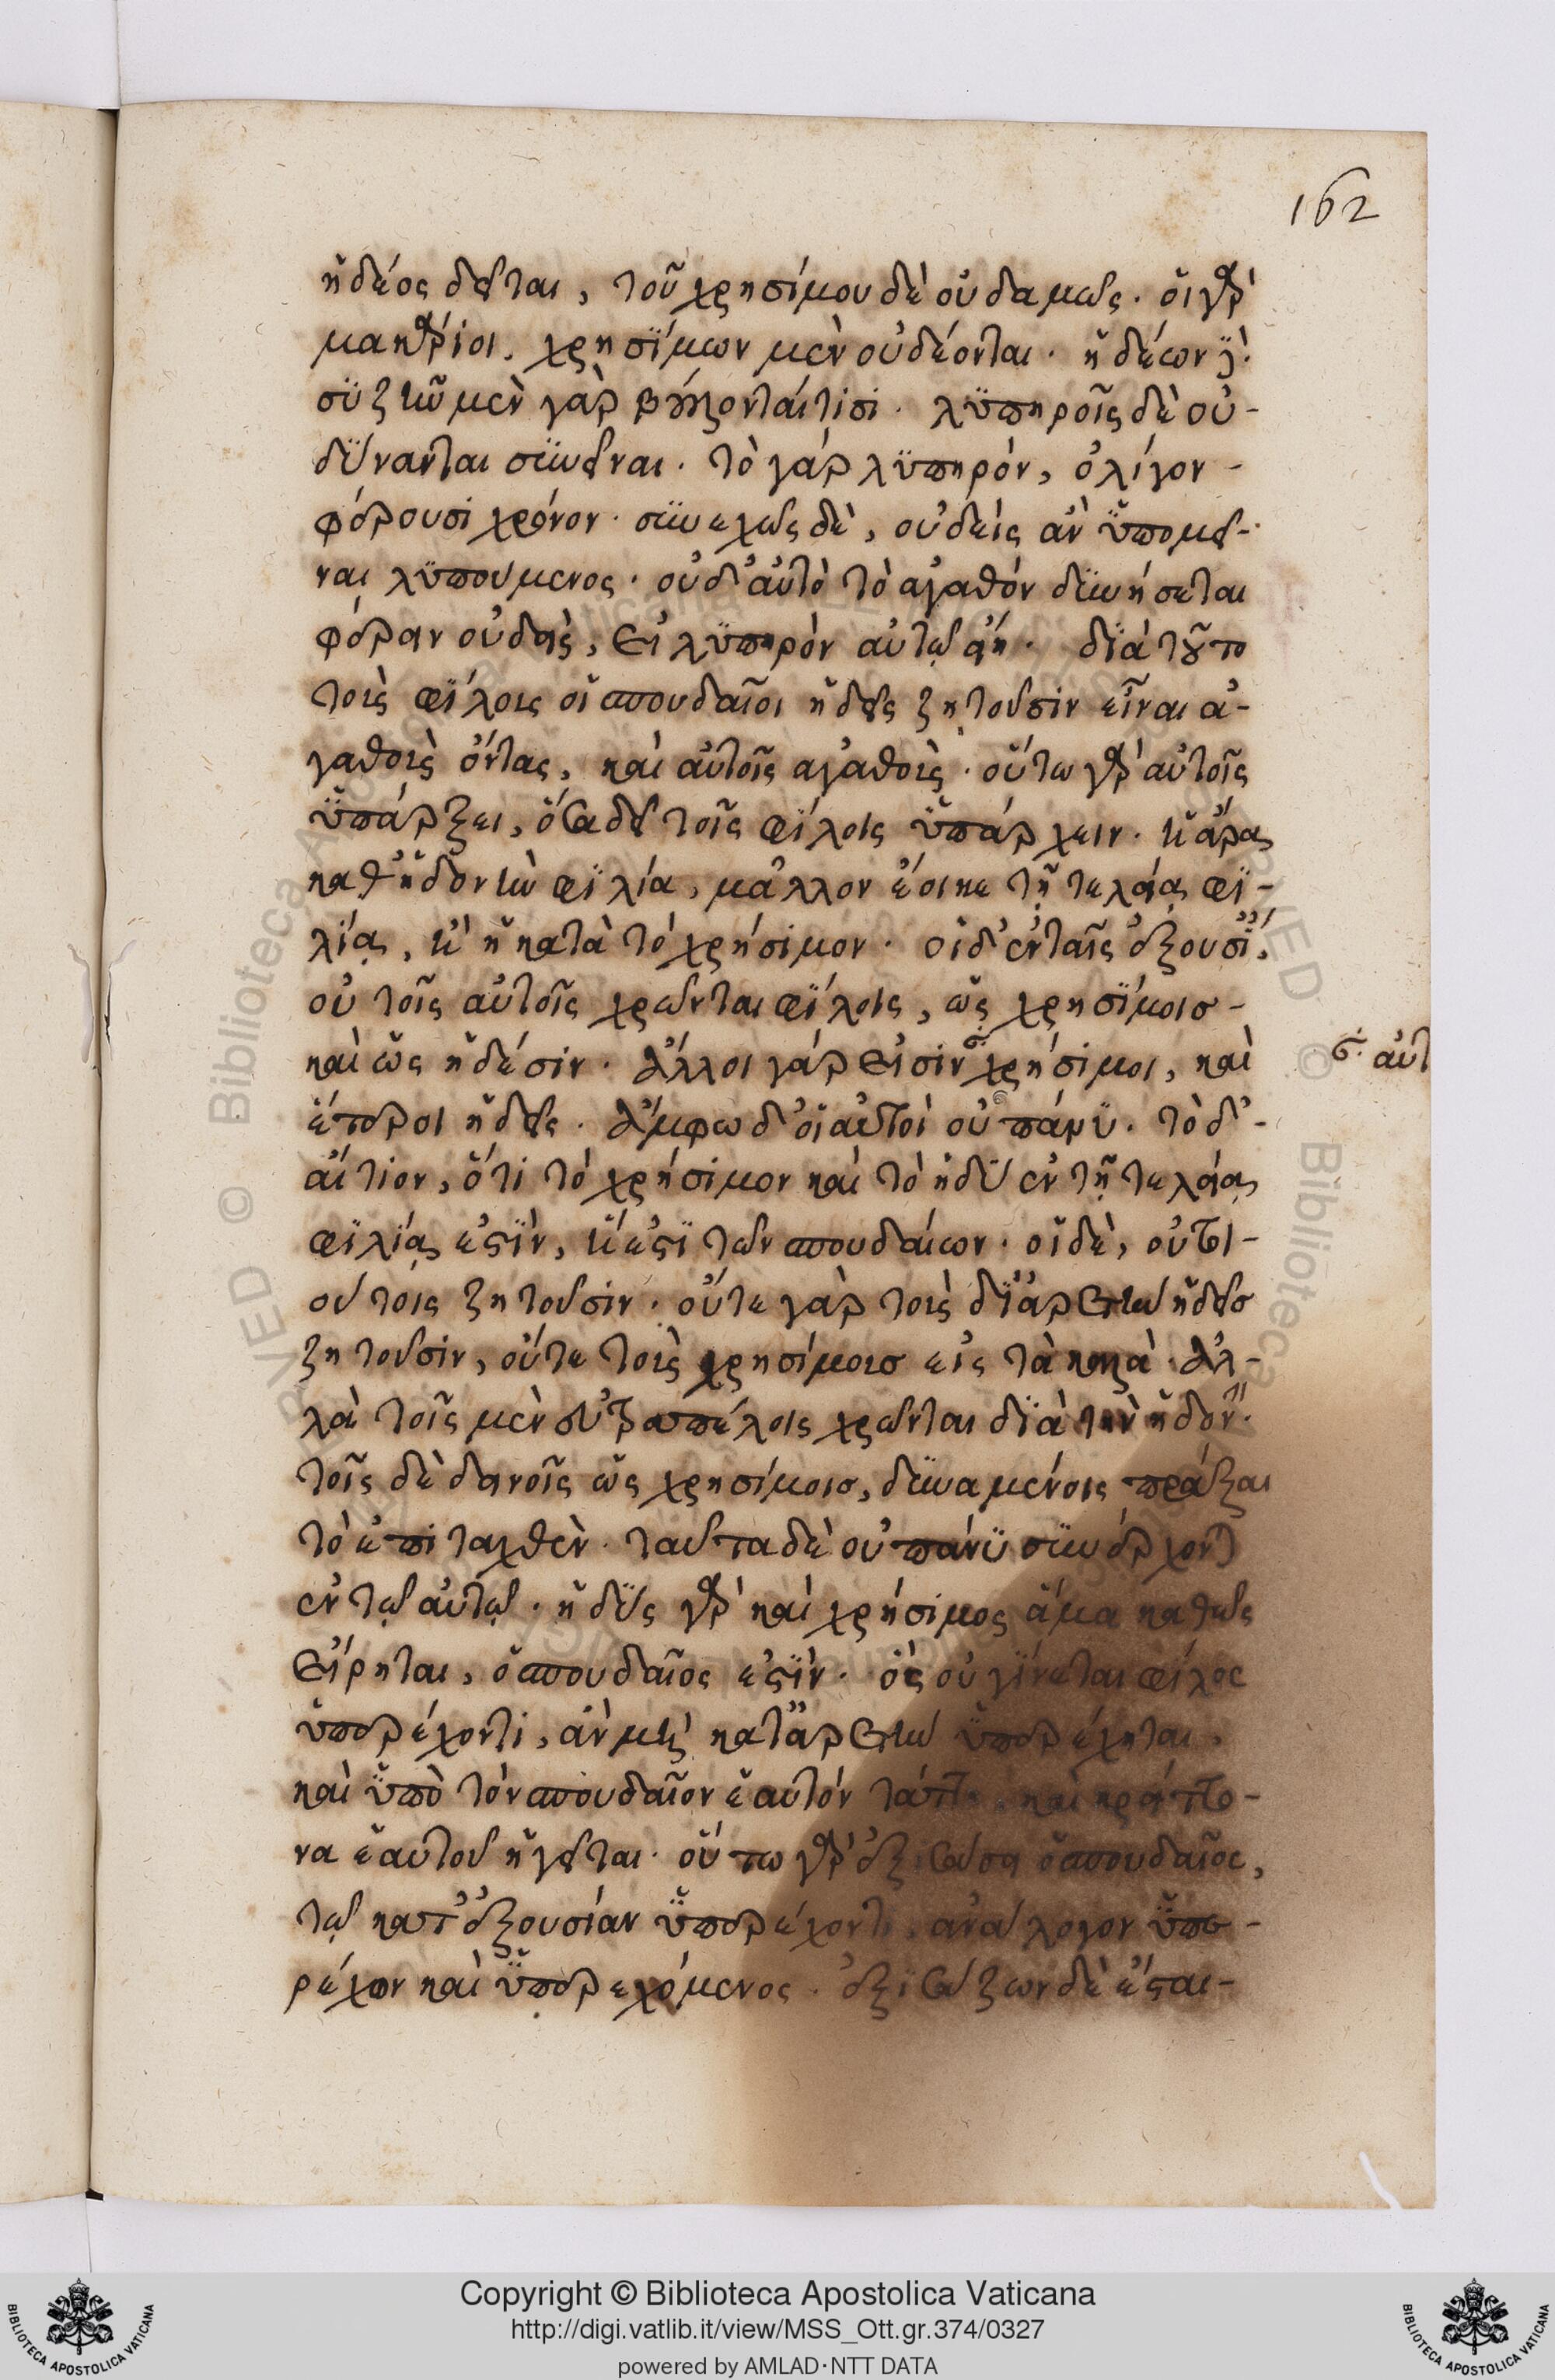 162
ἡδέος δεῖται, τοῦ χρησίμου δὲ οὐδαμῶς. οἱ γὰρ
μακάριοι, χρησΐμων μὲν οὐ δέονται. ἡδέων δέ.
συζῆν μὲν γὰρ βούλονταί τισι. λϋπηροῖς δὲ οὐ-
δΰνανται συνεῖναι. τὸ γάρ λϋπηρόν, ὀλίγον-
φέρουσι χρόνον. συνεχῶς δὲ, οὐδεὶς ἂν ὑπομεῖ-
ναι λϋπούμενος. οὐδ' αὐτὸ τὸ ἀγαθόν δυνήσεται
φέρειν οὐδεὶς, εἰ λϋπηρὸν αὐτῷ εἴη. δϊὰ τοῦτο
τοὺς φΐλους οἱ σπουδαῖοι ἡδεῖς ζητοῦσιν εἶναι ἀ-
γαθοὺς ὄντας, καὶ αὐτοῖς ἀγαθοὺς. οὕτω γὰρ αὐτοῖς
ὑπάρξει, ὅσα δεῖ τοῖς φΐλοις ὑπάρχειν. ἡ ἄρα
καθ' ἡδονὴν φϊλία, μᾶλλον ἔοικε τῇ τελείᾳ φϊ-
λίᾳ, ἢ ἡ κατὰ τὸ χρήσιμον. οἱ δ' ἐν ταῖς ἐξουσί,
οὐ τοῖς αὐτοῖς χρῶνται φΐλοις, ὡς χρησΐμοισ-
καὶ ὡς ἡδέσιν. ἄλλοι γάρ εἰσιν χρήσιμοι, καὶ
ἕτεροι ἡδεῖς. ἄμφω δ' οἱ αὐτοὶ οὐ πάνυ. τὸ δ'-
αἴτιον, ὅτι τὸ χρήσιμον καὶ τὸ ἡδὺ ἐν τῇ τελείᾳ
φϊλίᾳ ἐστὶν, ἥ ἐστϊ τῶν σπουδαίων. οἱ δὲ, οὐ τοι-
ούτους ζητοῦσιν. οὔτε γὰρ τοὺς δϊ' ἀρετὴν ἡδεῖσ
ζητοῦσιν, οὔτε τοὺς χρησίμουσ εἰς τὰ καλὰ. ἀλ-
λὰ τοῖς μὲν εὐτραπέλοις χρῶνται δϊὰ τὴν ἡδον.
τοῖς δὲ δεινοῖς ὡς χρησίμοισ, δυναμένοις πράξαι
τὸ ἐπιταχθὲν. ταῦτα δὲ οὐ πάνυ συνέρχονται
ἐν τῷ αὐτῷ. ἡδὺς γὰρ καὶ χρήσιμος ἅμα καθὼς
εἴρηται, ὁ σπουδαῖος ἐστϊν. ὃς οὐ γΐνεται φίλος
ὑπερέχοντι, ἂν μὴ κατ' ἀρετὴν ὑπερέχηται,
καὶ ὑπὸ τὸν σπουδαῖον ἑαυτόν τάττῃ, καὶ κρείττο-
να ἑαυτοῦ ἡγεῖται. οὕτω γὰρ ἐξισώσει ὁ σπουδαῖος,
τῷ κατ' ἐξουσίαν ὑπερέχοντι, ἀνάλογον ὑπε-
ρέχων καὶ ὑπερεχόμενος. ἐξϊσάζων δὲ ἔσται-
αὐτ
Copyright © Biblioteca Apostolica Vaticana
http://digi.vatlib.it/view/MSS_Ott.gr.374/0327
powered by AMLAD·NTT DATA
BIBLIOTECA APOSTOLICA VATICANA
BIBLIOTECA APOSTOLICA VATICANA